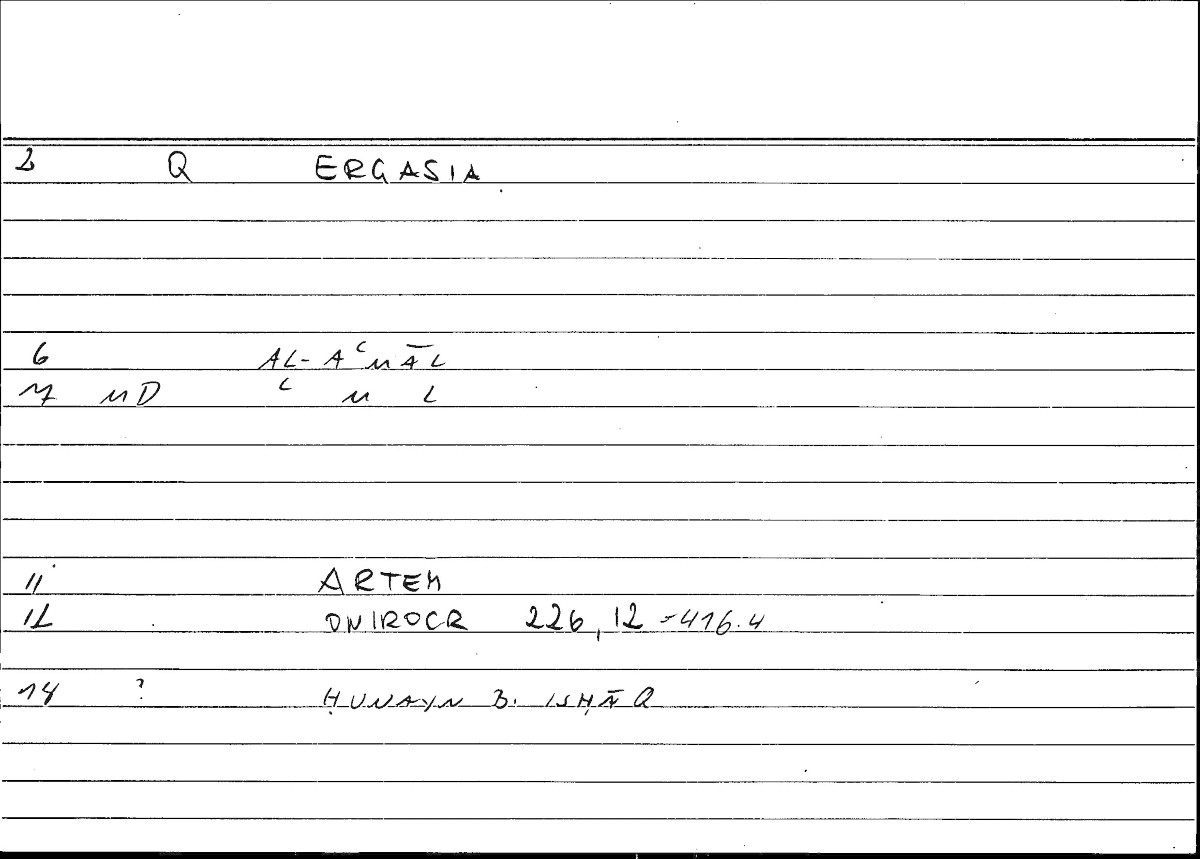 2 Q ERGASIA
6 AL-AʿMĀL
7 MD ʿ M L
11 ARTEM
12 ONIROCR 226,12 = 416.4
14 ? ḤUNAYN B. ISḤĀQ